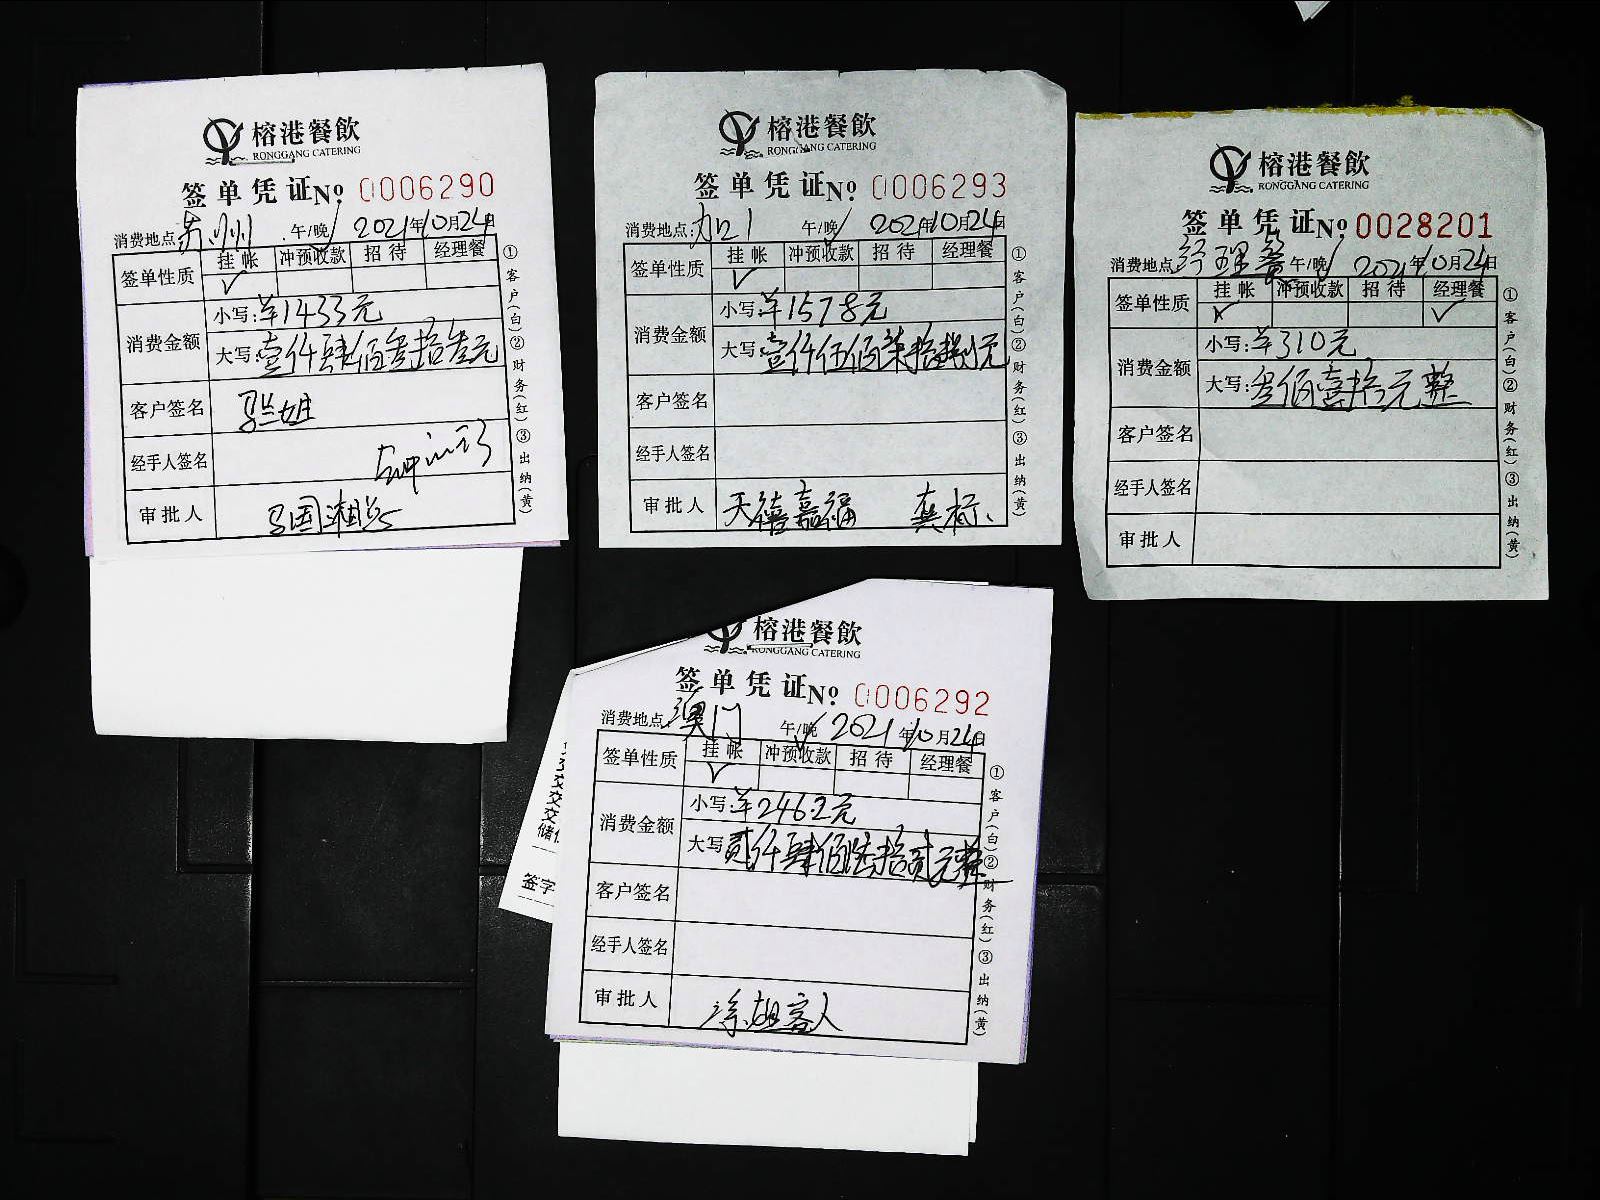 榕港餐飲
RONGGANG CATERING
签单凭证№ 0006290
消费地点: 苏州 午/晚 2021年10月24日
签单性质 挂帐 冲预收款 招待 经理餐
✓
消费金额 小写:羊1433元
大写:壹仟肆佰叁拾叁元
客户签名
经手人签名
审批人
①客户(白)②财务(红)③出纳(黄)
榕港餐飲
RONGGANG CATERING
签单凭证№ 0006293
消费地点: 加口1 午/晚 2021年10月24日
签单性质 挂帐 冲预收款 招待 经理餐
✓
消费金额 小写:羊1578元
大写:壹仟伍佰柒拾捌元
客户签名
经手人签名
审批人 天禧嘉福 龚标
①客户(白)②财务(红)③出纳(黄)
榕港餐飲
RONGGANG CATERING
签单凭证№ 0028201
消费地点 经理餐 午/晚 2021年10月24日
签单性质 挂帐 冲预收款 招待 经理餐
✓
消费金额 小写:羊310元
大写:叁佰壹拾元整
客户签名
经手人签名
审批人
①客户(白)②财务(红)③出纳(黄)
榕港餐飲
RONGGANG CATERING
签单凭证№ 0006292
消费地点: 澳门 午/晚 2021年10月24日
签单性质 挂帐 冲预收款 招待 经理餐
✓
消费金额 小写:羊2462元
大写 贰仟肆佰陆拾贰元整
客户签名
经手人签名
审批人 涂姐客人
①客户(白)②财务(红)③出纳(黄)
交
交
交
储
签字